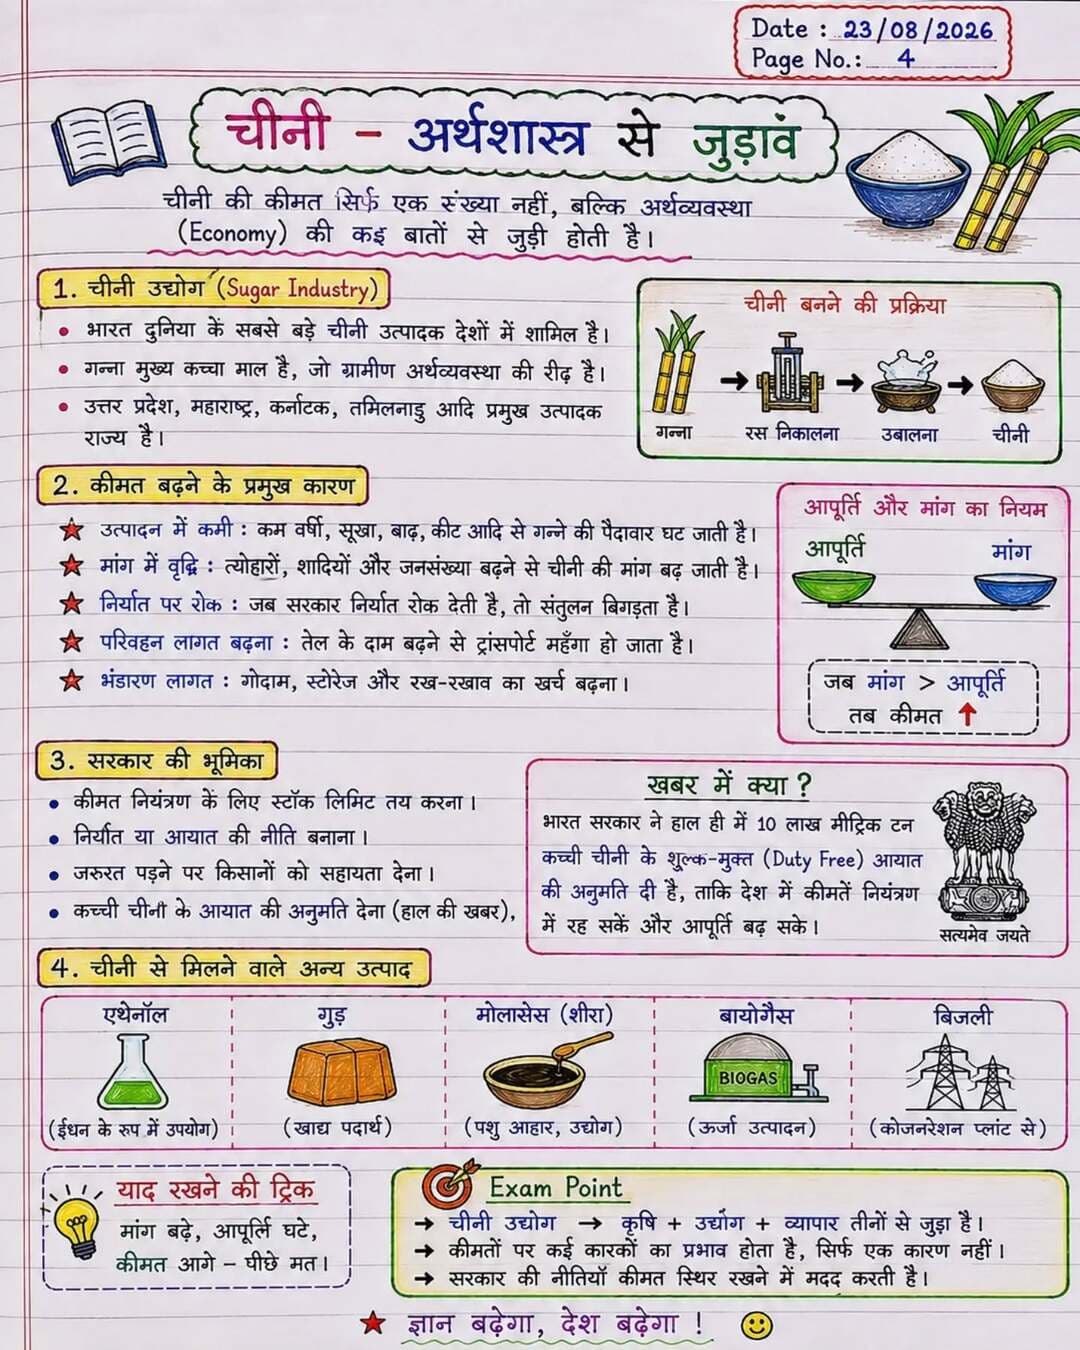 Date : 23/08/2026
Page No.: 4
चीनी - अर्थशास्त्र से जुड़ावं
चीनी की कीमत सिर्फ एक संख्या नहीं, बल्कि अर्थव्यवस्था
(Economy) की कइ बातों से जुड़ी होती है।
1. चीनी उद्योग (Sugar Industry)
• भारत दुनिया कें सबसे बड़े चीनी उत्पादक देशों में शामिल है।
• गन्ना मुख्य कच्चा माल है, जो ग्रामीण अर्थव्यवस्था की रीढ़ है।
• उत्तर प्रदेश, महाराष्ट्र, कर्नाटक, तमिलनाडु आदि प्रमुख उत्पादक
राज्य है।
चीनी बनने की प्रक्रिया
गन्ना रस निकालना उबालना चीनी
2. कीमत बढ़ने के प्रमुख कारण
★ उत्पादन में कमी : कम वर्षी, सूखा, बाढ़, कीट आदि से गन्ने की पैदावार घट जाती है।
★ मांग में वृद्रि : त्योहारों, शादियों और जनसंख्या बढ़ने से चीनी की मांग बढ़ जाती है।
★ निर्यात पर रोक : जब सरकार निर्यात रोक देती है, तो संतुलन बिगड़ता है।
★ परिवहन लागत बढ़ना : तेल के दाम बढ़ने से ट्रांसपोर्ट महँगा हो जाता है।
★ भंडारण लागत : गोदाम, स्टोरेज और रख-रखाव का खर्च बढ़ना।
आपूर्ति और मांग का नियम
आपूर्ति मांग
जब मांग > आपूर्ति
तब कीमत ↑
3. सरकार की भूमिका
• कीमत नियंत्रण कें लिए स्टॉक लिमिट तय करना।
• निर्यात या आयात की नीति बनाना।
• जरुरत पड़ने पर किसानों को सहायता देना।
• कच्ची चीनी के आयात की अनुमति देना (हाल की खबर),
खबर में क्या ?
भारत सरकार ने हाल ही में 10 लाख मीट्रिक टन
कच्ची चीनी के शुल्क-मुक्त (Duty Free) आयात
की अनुमति दी है, ताकि देश में कीमतें नियंत्रण
में रह सकें और आपूर्ति बढ़ सके।
सत्यमेव जयते
4. चीनी से मिलने वाले अन्य उत्पाद
एथेनॉल गुड़ मोलासेस (शीरा) बायोगैस बिजली
BIOGAS
(ईधन के रुप में उपयोग) (खाद्य पदार्थ) (पशु आहार, उद्योग) (ऊर्जा उत्पादन) (कोजनरेशन प्लांट से)
याद रखने की ट्रिक
मांग बढ़े, आपूर्लि घटे,
कीमत आगे – पीछे मत।
Exam Point
→ चीनी उद्योग → कृषि + उद्योग + व्यापार तीनों से जुड़ा है।
→ कीमतों पर कई कारकों का प्रभाव होता है, सिर्फ एक कारण नहीं।
→ सरकार की नीतियाँ कीमत स्थिर रखने में मदद करती है।
★ ज्ञान बढ़ेगा, देश बढ़ेगा !